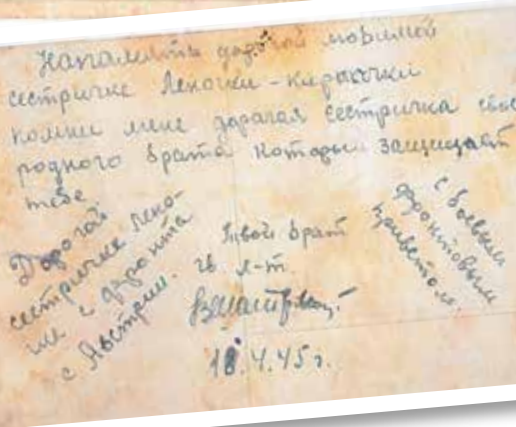 Напамять дорогой любимой
сестричке Леночки -
помни мене дорогая сестричка
родного брата который защищает
тебе
Дорогой
сестричке Лено-
чке с фронта
с Австрии.
Твой брат
гв. л-т.
18.4.45 г.
с боевым
фронтовым
приветом.